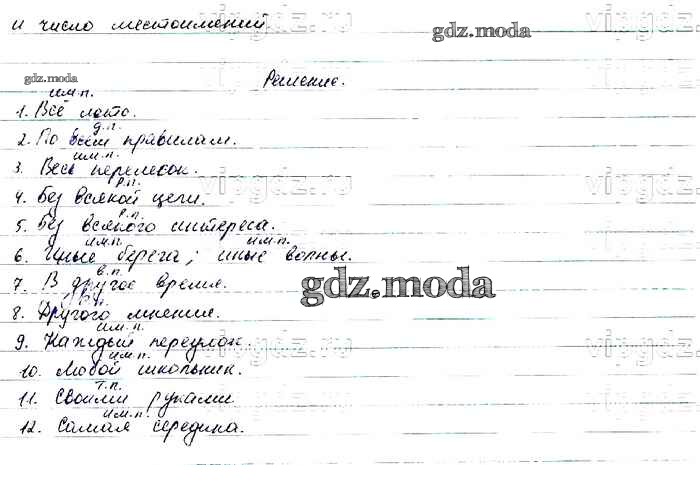 и число местоимений
gdz.moda
vipgdz.ru
gdz.moda
Решение.
им.п.
1. Всё лето.
д.п.
2. По всем правилам.
им.п.
3. Весь перелесок.
vipgdz.ru
vipgdz.ru
р.п.
4. Без всякой цели.
р.п.
5. Без всякого интереса.
им.п. им.п.
6. Иные берега; иные волны.
в.п.
7. В другое время.
gdz.moda
8. Другого мнения.
им.п.
9. Каждый переулок.
vipgdz.ru
vipgdz.ru
им.п.
10. Любой школьник.
т.п.
11. Своими руками
им.п.
12. Самая середина.